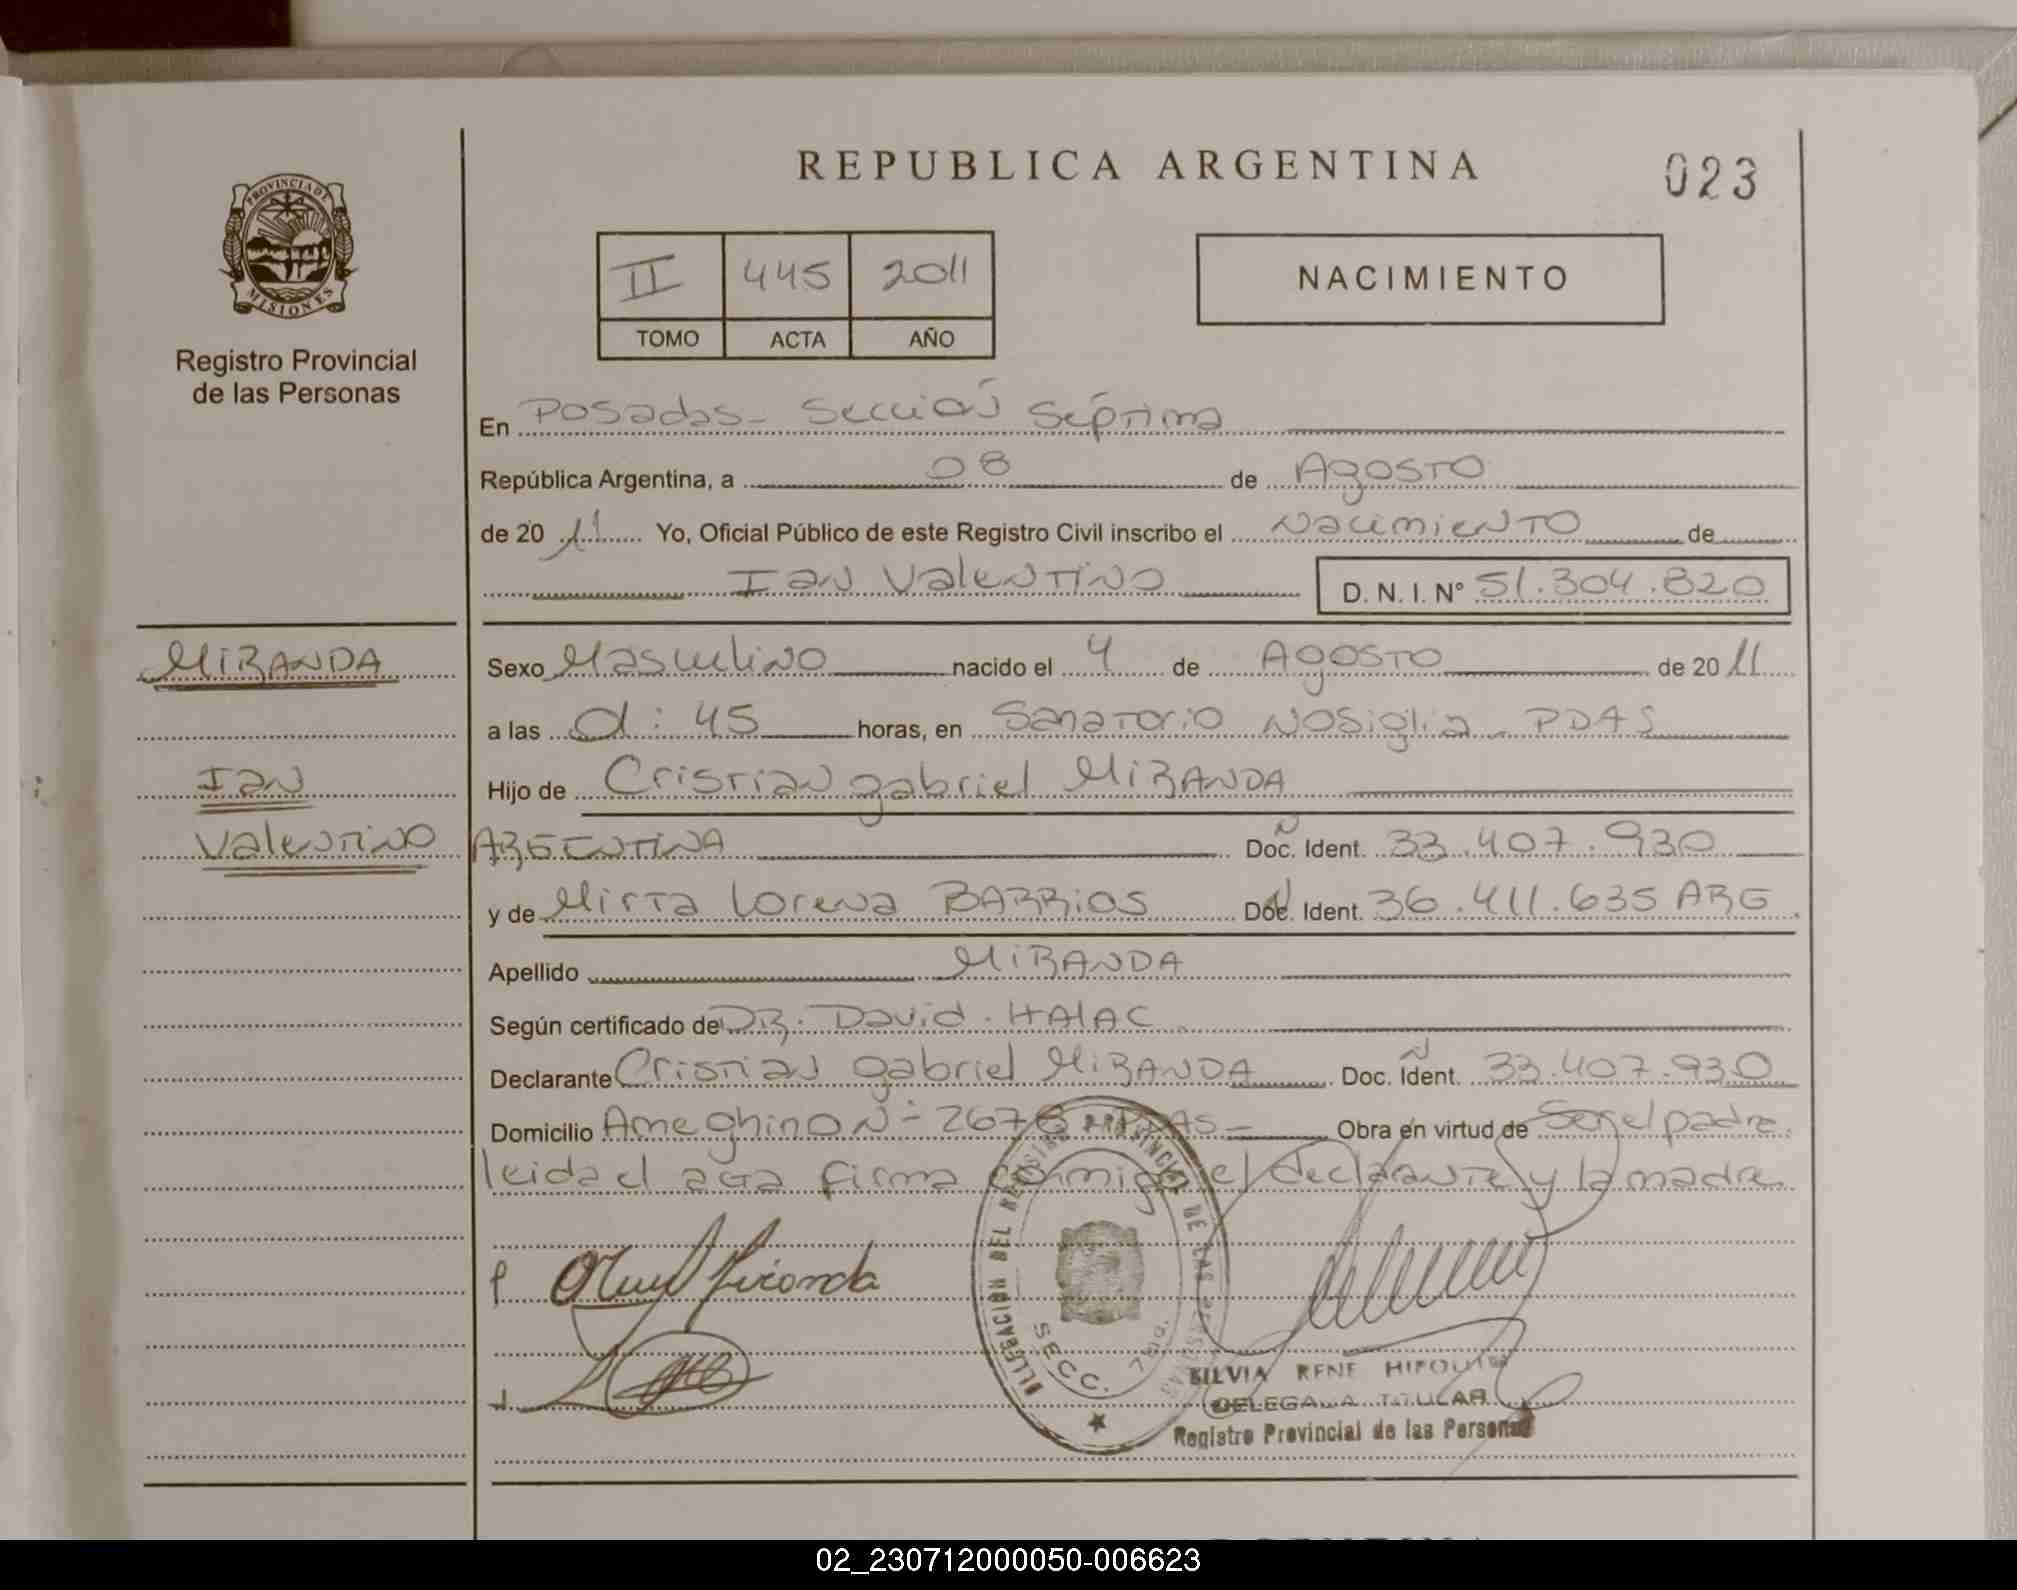 REPUBLICA ARGENTINA
023
PROVINCIA DE
MISIONES
Registro Provincial
de las Personas
II 445 2011
TOMO ACTA AÑO
NACIMIENTO
En Posadas - Sección Séptima
República Argentina, a 08 de Agosto
de 20 11 Yo, Oficial Público de este Registro Civil inscribo el Nacimiento de
Ian Valentino D. N. I. N° 51.304.820
MIRANDA
Ian
Valentino
Sexo Masculino nacido el 4 de Agosto de 20 11
a las 0:45 horas, en Sanatorio Nosiglia - PDAS
Hijo de Cristian gabriel MIRANDA
ARGENTINA Doc. Ident. 33.407.930
y de Mirta Lorena BARRIOS Doc. Ident. 36.411.635 ARG
Apellido MIRANDA
Según certificado de DR. David HALAC
Declarante Cristian gabriel MIRANDA Doc. Ident. 33.407.930
Domicilio Ameghino N- 2676 PDAS - Obra en virtud de Ser el padre.
leida el acta firma conmigo el declarante y la madre
DELEGACIÓN DEL REGISTRO PROVINCIAL DE LAS PERSONAS
SECC. 7ma.
SILVIA RENE HIPOLITO
DELEGADA TITULAR
Registro Provincial de las Personas
02_230712000050-006623